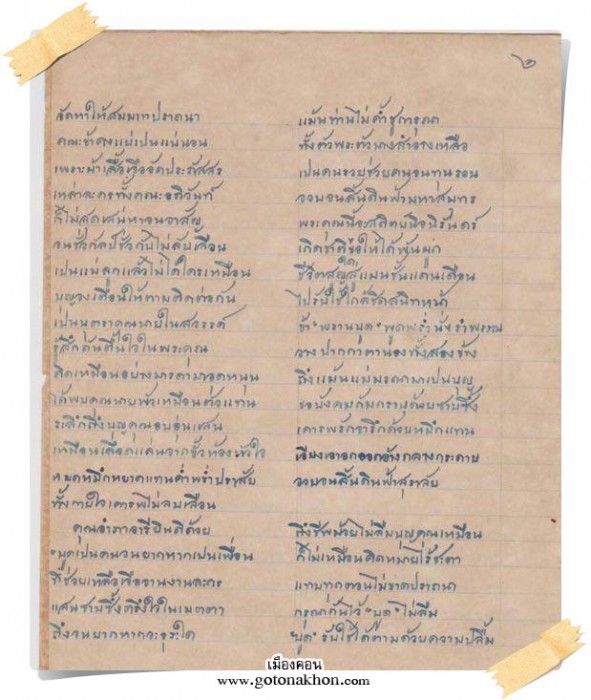 ๒
จัดหาให้สมมาทปรารถนา
แม้นท่านไม่ค้ำชูการุณ
คณะข้าคงแย่เป็นแน่นอน
ทั้งตัวพระตัวนางสำอางเหลือ
เพราะผ้าเสื้อ ประภัสสร
เป็นคนรวยช่วยคนจนทุนรอน
เหล่าละครทั้งคณะอภิวันท์
จวบจนสิ้นดินฟ้ามหาสมุทร
ก็ไม่สุดเสน่หาจนอาสัญ
พระคุณนี้จะสถิตนิจนิรันดร์
จนชั่วกัลป์ชั่วกัปไม่ลับเลือน
เกิดชาติใดขอให้ได้พันผูก
เป็นแม่ลูกแล้วไม่ได้ใครเหมือน
ชีวิตสูญสู่แมนชั้นแดนเดือน
บุญจงเตือนให้ตามติดต่อกัน
ไปรับใช้ใกล้ชิดสนิทหน้า
เป็นบุตราคุณนายในสวรรค์
ข้า "พรานบูด" พูดพร่ำนั่งรำพรรณ
รู้สึกตันตื้นใจในพระคุณ
วางปากกาตานองทั้งสองข้าง
คิดเหมือนอย่างมารดามาอุดหนุน
ถึงแม้นแม่มรณาเป็นบุญ
ได้พบคุณนายพัวเหมือนตัวแทน
ขอบังคมก้มกราบกับซาบซึ้ง
ระลึกถึงบุญคุณอบอุ่นแสน
เคารพรักจารึกด้วยหมึกแทน
เหมือนเลือดแค่นจากขั้วห้องหัวใจ
กลางกระดาษ
หมดหมึกหยาดแทนคำพร่ำปราสัย
จวบจนสิ้นดินฟ้าสุราลัย
ทั้งกายใจเคารพไม่ลบเลือน
คุณอำภาอารี ด้วย
ถึงชีพม้วยไม่ลืมบุญคุณเหมือน
"บูด" เป็นคนจนยากหากเป็นเพื่อน
ก็ไม่เหมือนคิดหมายไร้ชะตา
ที่ช่วยเหลือเจือจานงานละคร
แทบทุกตอนไม่ขาดปรารถนา
แสนซาบซึ้งตรึงใจในเมตตา
กรุณาถึงไว้ "บูด" ไม่ลืม
ถึงจนยากหากธุระใด
"บูด" รับใช้ได้ตามด้วยความปลื้ม
เมืองคอน
www.gotonakhon.com